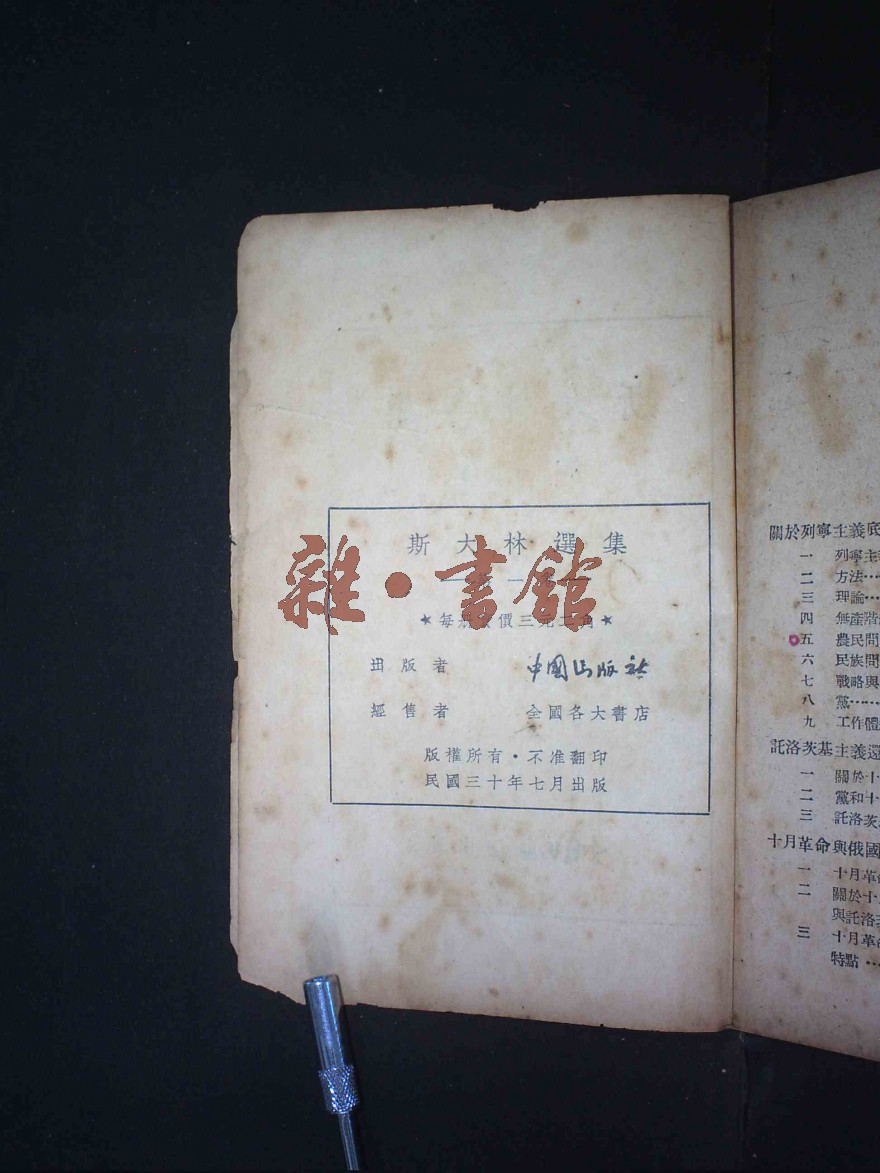 斯大林選集
雜·書館
★每
價三
★
出版者 中國出版社
經售者 全國各大書店
版權所有·不准翻印
民國三十年七月出版
關於列寧主義底
一 列寧主
二 方法…
三 理論…
四 無產階
五 農民問
六 民族問
七 戰略與
八 黨……
九 工作體
託洛茨基主義還
一 關於十
二 黨和十
三 託洛茨
十月革命與俄國
一 十月革
二 關於十
與託洛
三 十月革
特點…